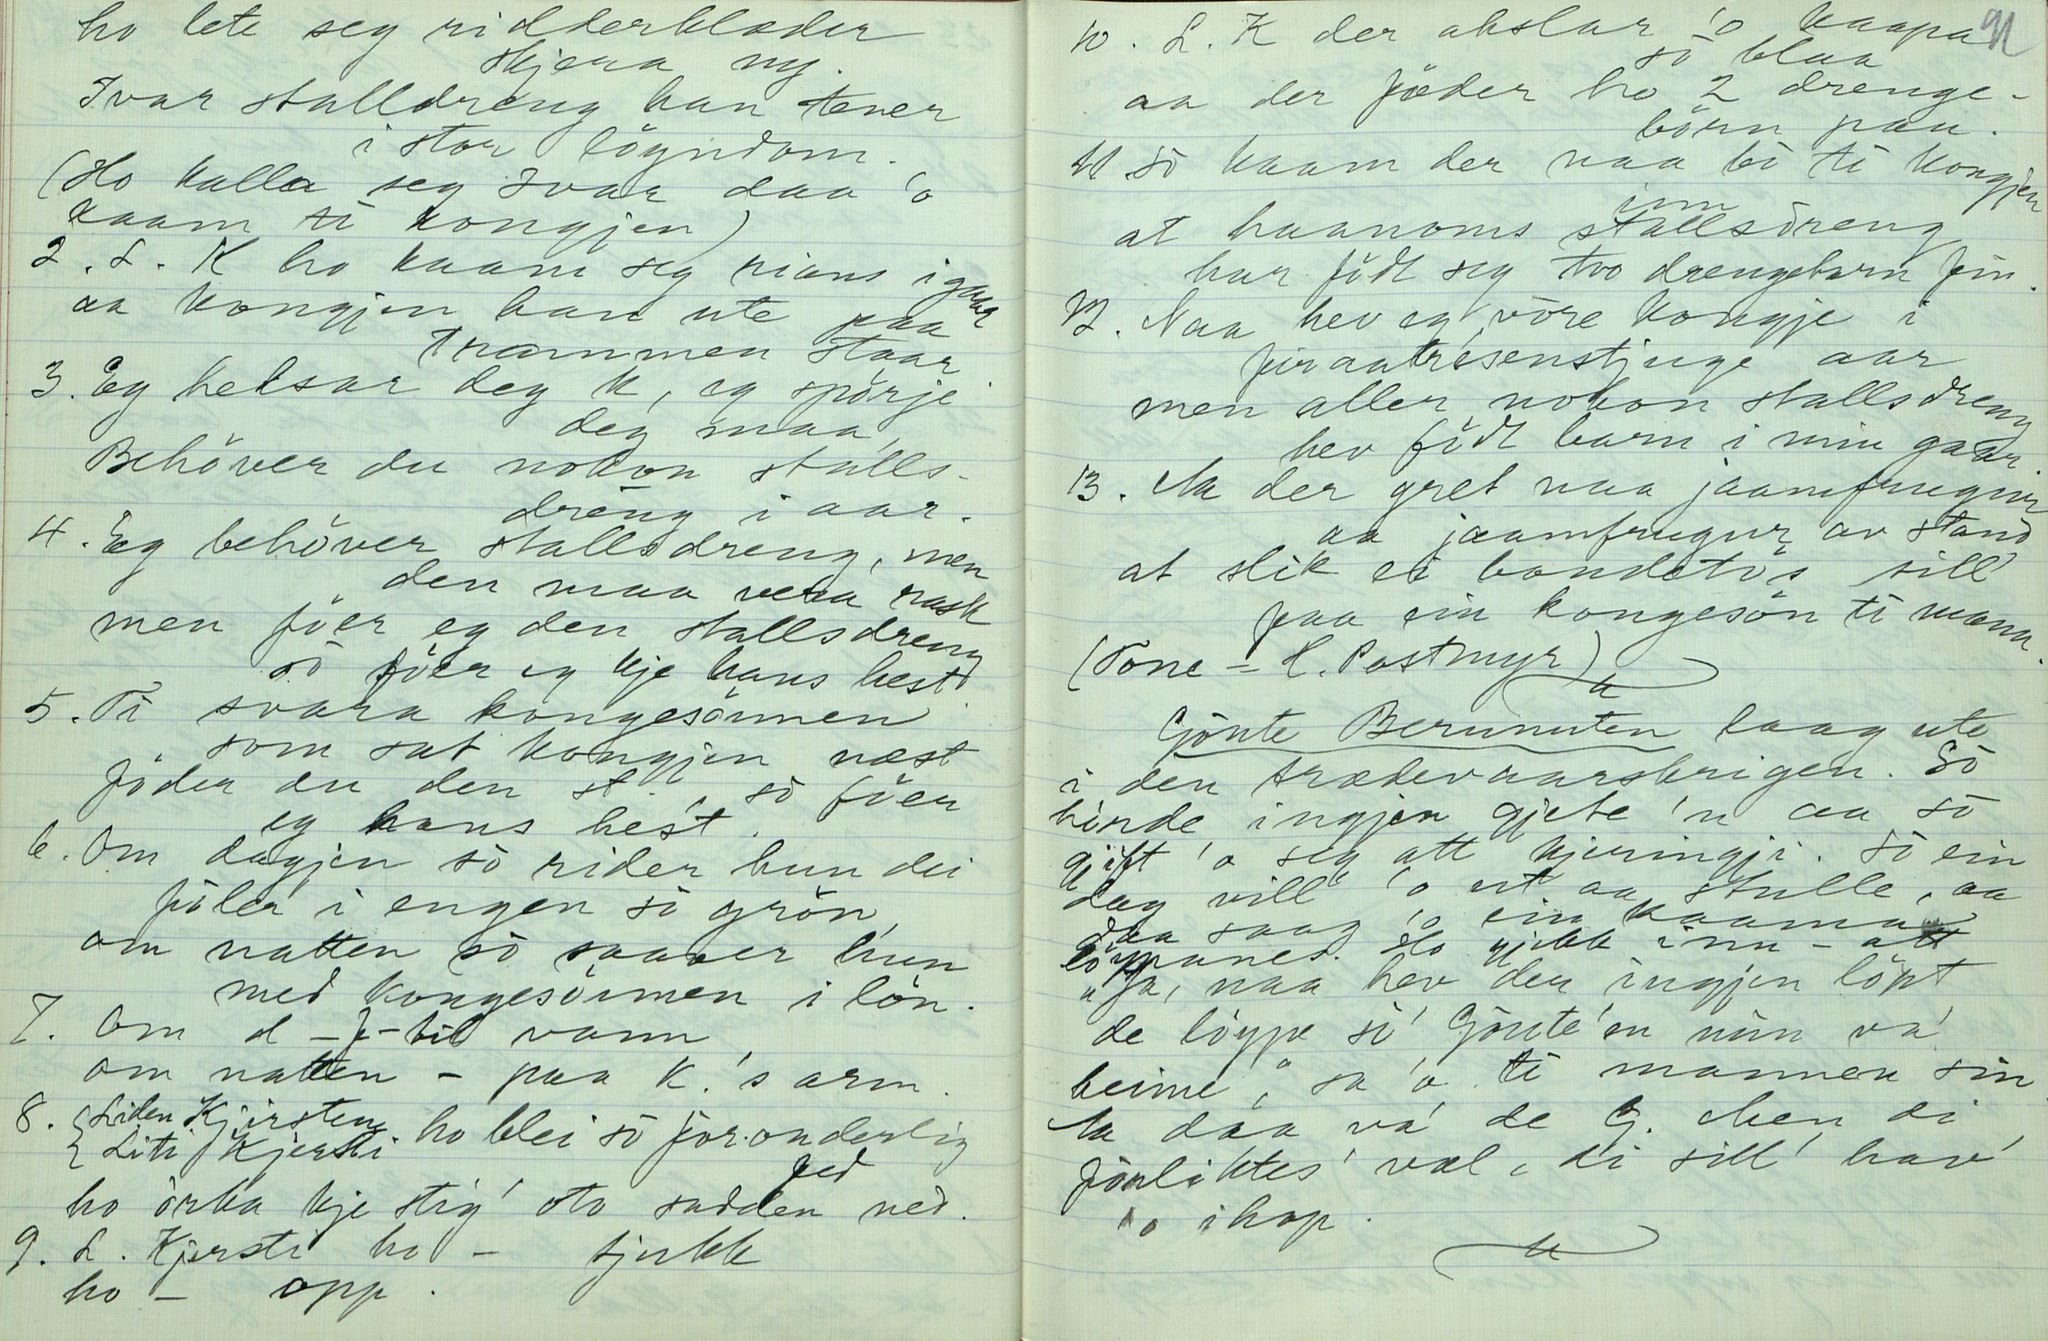 ho lete seg ridderklæder
skjera ny.
Ivar stalldreng han tener
i stor löyndom.
(Ho kalla seg Ivar daa 'o
kaam ti kongjen)
2. L. K ho kaam seg rians i gaar
aa kongjen han ute paa
trammen staar
3. Eg helsar deg K, eg spörje
deg maa,
Behöver du nokon stalls-
dreng i aar.
4. Eg behöver stallsdreng, men
den maa vera rask
men föer eg den stallsdreng
so föer eg kje hans hest
5. Ti svara kongesönnen
som sat kongjen næst
föder du den st., so föer
eg hans hest.
6. Om dagjen so rider hun dei
föler i engen so grön
om natten so saaver hun
med kongesönnen i lön.
7. Om d - f - til vann
om natten - paa K.'s arm.
8. {Liden Kjirsten ho blei so foronderlig
{Liti Kjersti
fed
ho orka kje stig' oto sadden ned.
9. L. Kjersti ho - tjukk
ho - opp.
91
10. L. K der akslar 'o kaapa
so blaa
aa der föder ho 2 drenge-
börn paa.
11 so kaam der naa bo ti kongjen
inn
at haanoms stallsdreng
har födt seg tvo drengebarn fin.
12. Naa hev eg vöre kongje i
firaatrésenstjuge aar
men aller nokon stallsdreng
hev födt barn i min gaar.
13. Aa der gret naa jaamfrugur
aa jaamfrugur av stand
at slik ei bondetös sill'
faa ein kongesön ti mann.
(Tone - H. Postmyr)
Gönte Berunuten laag ute
i den trædevaarskrigen. So
hende ingjen gjete 'n aa so
gjift 'o seg att kjeringji. So ein
dag vill 'o ut aa stulle, aa
daa saag 'o ein kaama
löypanes. Ho gjekk inn - att
"Ja, naa hev der ingjen löpt
de löype so' Gönte'en min va'
heime", sa 'o ti mannen sin
Aa daa va' de G. Men di
forliktes' væl, di sill' hav'
'o ihop.